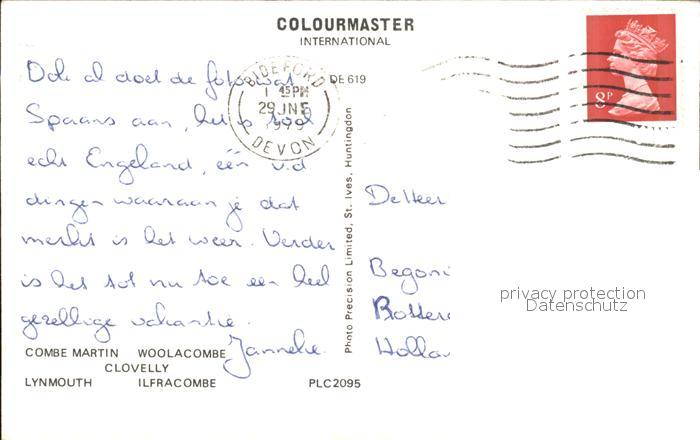 COLOURMASTER
INTERNATIONAL
DE 619
BIDEFORD
1 45PM
29 JNE
1979
DEVON
8P
Ook al doet de foto wat
Spaans aan, het is toch
echt Engeland, één v.d
dingen waaraan je dat
merkt is het weer. Verder
is het tot nu toe een heel
gezellige vakantie.
Janneke.
De Heer
Begoni
Rotter
Hollan
Photo Precision Limited, St. Ives, Huntingdon
privacy protection
Datenschutz
COMBE MARTIN WOOLACOMBE
CLOVELLY
LYNMOUTH ILFRACOMBE PLC2095